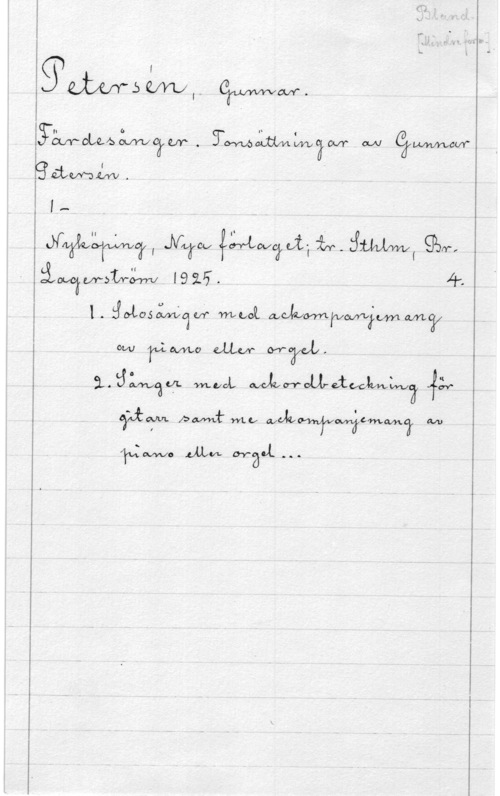 Bland.
[Mindre form.]
Petersén, Gunnar.
Färdesånger. Tonsättningar av Gunnar
Petersén.
1-
Nyköping, Nya förlaget; tr. Sthlm, Br.
Lagerström 1925. 4.
1. Solosånger med ackompanjemang
av piano eller orgel.
2. Sånger med ackordbeteckning för
gitarr samt me ackompanjemang av
piano eller orgel ...